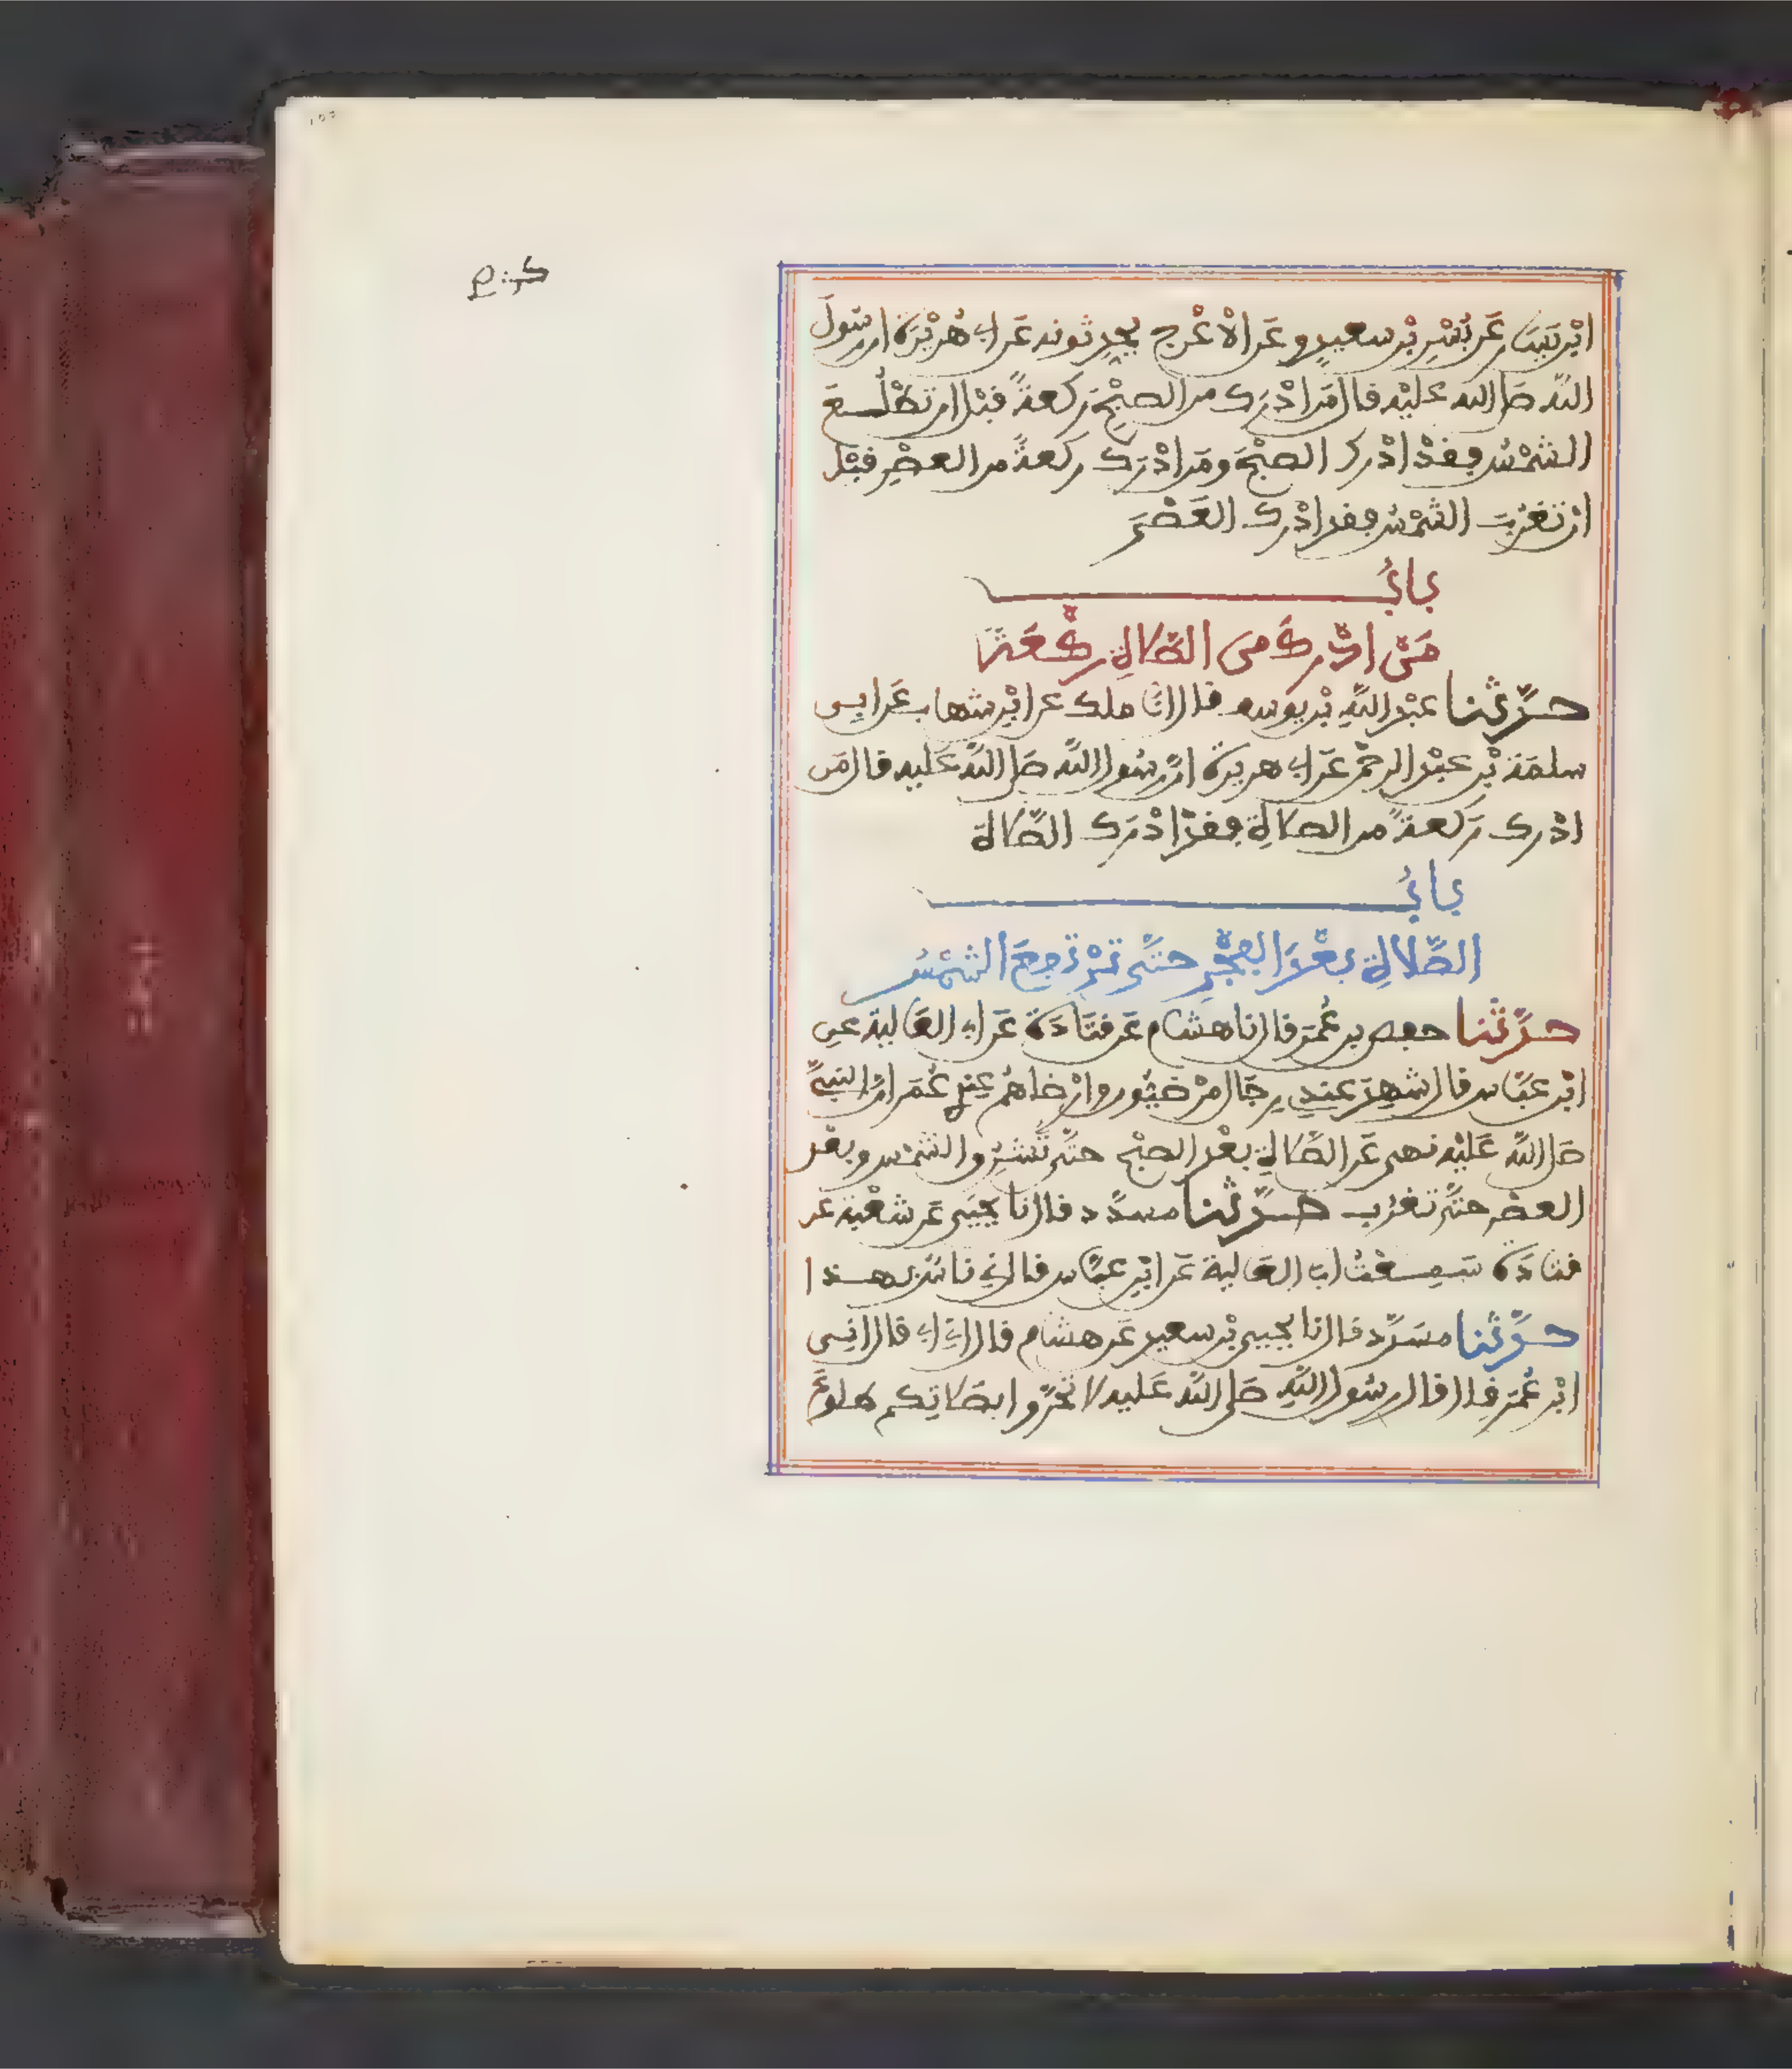 ابْن يَسَار عَن بُسْرِ بْن سعيدٍ وعَن الاعْرج يحدثونه عَن ابي هُريْرَة ان رسُولَ
اللّه صَلى الله عليْه قال مَن ادْرَك من الصبْحِ رَكعةً قبْل ان تَطْلُعَ
الشمْسُ فقدْ ادْرك الصبْحَ ومَن ادْرَك ركعةً من العصْرِ قبْل
ان تغْرُبَ الشمْسُ فقد ادْرك العَصْرَ
بابُ
مَنْ ادْركَ مِنَ الصَّلاةِ ركْعَةً
حدّثنا عبْد اللّهِ بْن يوسف قال انا ملك عن ابْن شهاب عَن ابي
سلمَة بْن عبْد الرحمْن عَن ابي هريرة انّ رسُول اللّه صَلى اللّه عَليه قال مَن
ادْرك رَكعةً من الصلاةِ فقدْ ادْرَك الصَّلاة
بابُ
الصَّلاةِ بعْدَ الفجْرِ حتَّى ترْتفِعَ الشمْسُ
حدّثنا حفص بن عُمَر قال نا هشام عَن قتَادَة عَن ابي العَالية عنِ
ابْن عبّاس قال شهِدَ عندِي رِجَال مرْضيُّون وارْضاهُم عِندِي عُمَر انّ النبيَّ
صَلى اللّه عَليْه نهى عَن الصَّلاةِ بعْد الصبْح حتَّى تُشْرِق الشمْس وبعْد
العصْر حتَّى تغْرُب حدّثنا مسدَّد قال نا يحْيَى عَن شعْبة عَن
قتادَة سَمِعْتُ ابا العَالية عَن ابْنِ عبّاس قال ني ناسٌ بهذا
حدّثنا مسَدّد قال نا يحيى بْن سعيد عَن هشام قال اني ابي قال اني
ابْن عُمَر قال قال رسُول اللّهِ صَلى اللّه عَليه لا تحَرَّوا بصَلاتكم طلوعَ